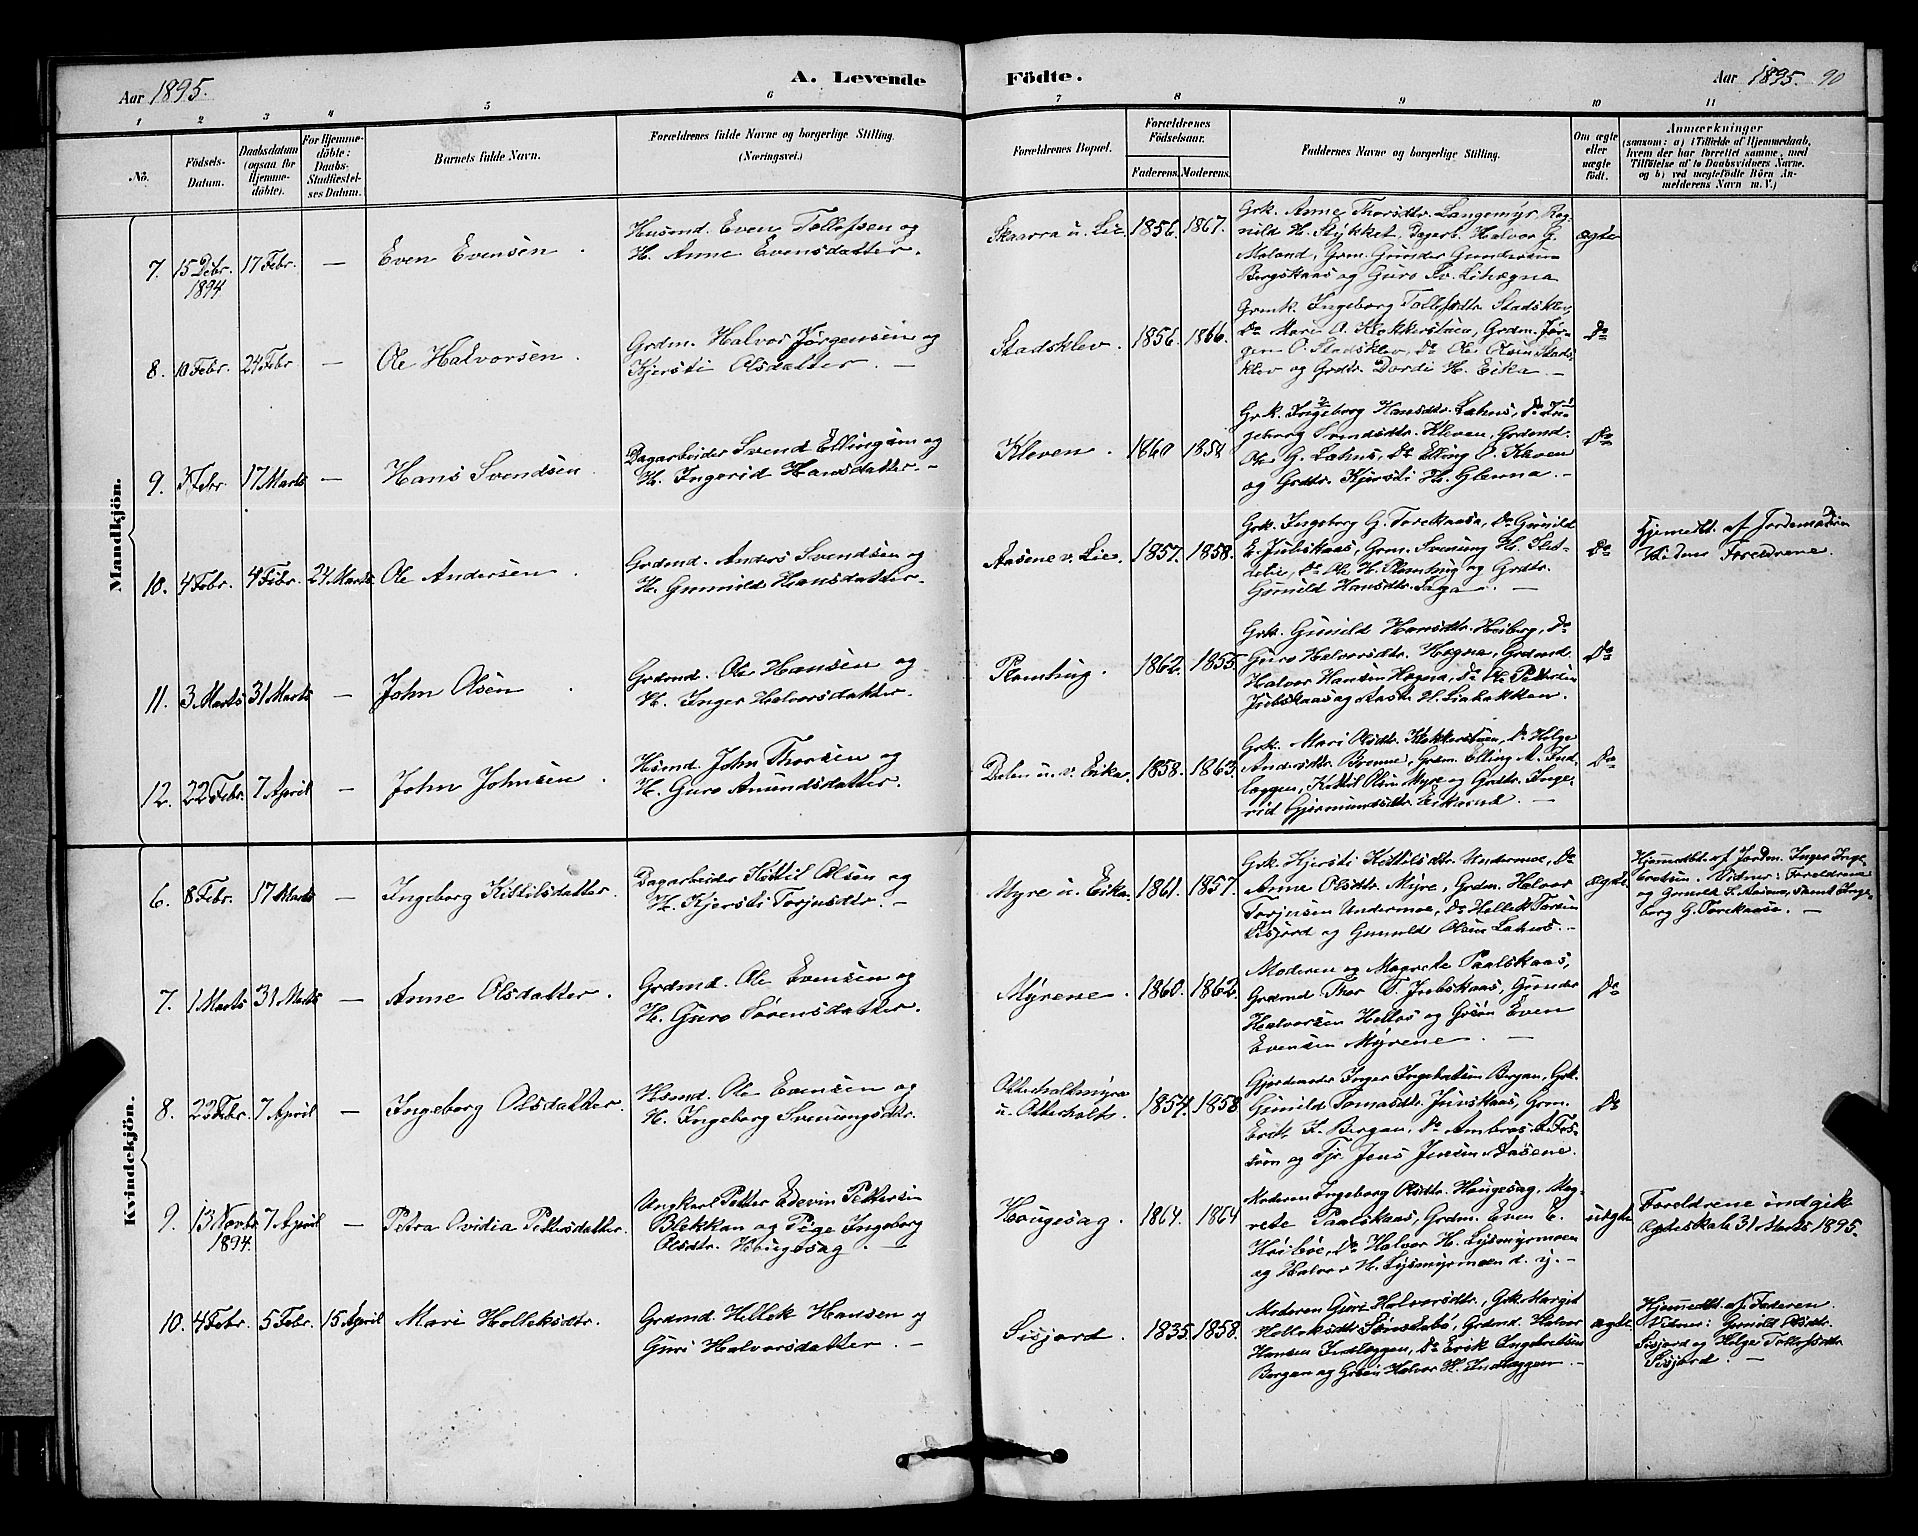 Aar 1895.
A. Levende
Födte.
Aar 1895. 90
1 2 3 4 5 6 7 8 9 10 11
No.
Födsels-
Datum.
Daabsdatum
(ogsaa for
Hjemme-
döbte).
For Hjemme-
döbte:
Daabs-
Stadfæstel-
ses Datum.
Barnets fulde Navn.
Forældrenes fulde Navne og borgerlige Stilling.
(Næringsvei.)
Forældrenes Bopæl.
Forældrenes
Födselsaar.
Faderens. Moderens.
Faddernes Navne og borgerlige Stilling.
Om ægte
eller
uægte
födt.
Anmærkninger
(saasom: a) i Tilfælde af Hjemmedaab,
hvem der har forrettet samme, med
Tilföielse af to Daabsvidners Navne.
og b) ved uægtefödte Börn An-
melderens Navn m. V.)
Mandkjön.
7. 15 Debr. 17 Febr. — Even Evensen.
1894
Husmd. Even Tollefsen og
H. Anne Evensdatter.
Skaarra u. Lie. 1856. 1867.
Grk. Anne Thorsdtr. Langemyr, Rag-
nild H. Stykket, Dagarb. Halvor G.
Moland, Grm. Gunder Gundersen
Bergskaas og Guro Sv. Lihægna
ægte
8. 10 Febr. 24 Febr — Ole Halvorsen.
Grdm. Halvor Jørgensen og
Kjersti Olsdatter. —
Stadsklev. 1856. 1866.
Grmk. Ingeborg Tollefsdtr. Stadsklev,
Do Mari O. Klokkerstuen, Grdm. Jør-
gen O. Stadsklev, Do Ole Olsen Stads-
klev og Grdtr. Dordi H. Eika. —
Do
9. 3 Febr. 17 Marts — Hans Svendsen.
Dagarbeider Svend Ellingsen og
H. Ingerid Hansdatter. —
Kleven. 1860 1858
Grk. Ingeborg Hansdtr. Lahus, Do In-
geborg Svendsdtr. Kleven, Grdmd.
Ole G. Lahus, Do Elling O. Kleven
og Grdtr. Kjersti H. Glenna. —
Do
10. 4 Febr. 4 Febr. 24 Marts Ole Andersen.
Grdmd. Anders Svendsen og
H. Gunnild Hansdatter.
Aasene v. Lie. 1857. 1858.
Grk. Ingeborg G. Torekaasa, Do Gunild
E. Jubskaas, Grm. Svenung H. Slet-
Lie, Do Ole H. Plantug og Grdtr.
Gunild Hansdtr. Saga. —
Do
Hjemedbt. af Jordemoderen
Vidner Foreldrene.
11. 3 Marts 31 Marts — John Olsen.
Grdmd. Ole Hansen og
H. Inger Halvorsdatter.
Plantug. 1862. 1855.
Grk. Gunild Hansdtr. Heiberg, Do
Guro Halvorsdtr. Hægna, Grdmd.
Halvor Hansen Hægna, Do Ole Pettersen
Jubskaas og Aaste H. Liabakken.
Do
12. 22 Febr. 7 April — John Johnsen.
Hsmd. John Thorsen og
H. Guro Amundsdatter.
Dalen u. v. Eika. 1858. 1863.
Grk. Mari Olsdtr. Klokkerstuen, Do Helge
Andersdtr. Brenne, Grdm. Elling A. Ind-
laggen, Kittil Olsen Myre og Grdtr. Inge-
rid Gjermundsdtr. Eikasund. —
Do
Kvindekjön.
6. 8 Febr. 17 Marts — Ingeborg Kittilsdatter.
Dagarbeider Kittil Olsen og
H. Kjersti Torjusdtr. —
Myre u. Eika. 1861. 1857.
Grk. Kjersti Kittilsdtr. Undermoe, Do
Anne Olsdtr. Myre, Grdm. Halvor
Torjusen Undermoe, Do Hellek Torsen
Sisjord og Gunuld Olsen Lahus. —
ægte.
Hjemmedbt. af Jordem. Inger Inge-
bretsen. Vidner: Foreldrene
og Gunild S. Aasene, samt Inge-
borg G. Torekaase. —
7. 1 Marts 31 Marts — Anne Olsdatter.
Grdmd. Ole Evensen og
H. Guro Sørensdatter.
Myrene. 1860. 1862.
Moderen og Magrete Paalskaas,
Grdmd Thor T. Jubskaas, Gunder
Halvorsen Hollas og Grsøn Even
Evensen Myrene. —
Do
8. 23 Febr. 7 April — Ingeborg Olsdatter.
Hsmd. Ole Evensen og
H. Ingeborg Svenungsdtr.
Otterholtmyra
u. Otterholts. 1854. 1858
Gjordemoder Inger Ingebretsen Bergan, Grk.
Gunild Tomasdtr. Juvskaas, Grm.
Erik K. Bergan, Do Ambros A. Fos-
søen og Tjr. Jens Jensen Aasene.
Do
9. 13 Novbr. 7 April — Petra Ovidia Pettersdatter.
1894.
Ungkarl Petter Edevin Pettersen
Blekkan og Pige Ingeborg
Olsdtr. Haugesag. —
Haugesag. 1864. 1864
Moderen Ingeborg Olsdtr. Haugesag, Mag-
rete Paalskaas, Grdm. Even E.
Kaasbøe, Do Halvor H. Lysmyrmoen
og Halvor H. Lysmyrmoen d. y. —
uægte
Foreldrene indgik
Ægteskab 31 Marts 1895.
10. 4 Febr. 5 Febr. 15 April Mari Helleksdtr.
Grdmd. Hellek Hansen og
Guri Halvorsdatter. —
Sisjord. 1835. 1858.
Moderen Guri Halvorsdtr., Grk. Margit
Helleksdtr Sønstebø, Grdmd. Halvor
Hansen Indlaggen, Do Erik Ingebretsen
Bergan og Grsøn Halvor H. Indlaggen. —
ægte.
Hjemmedbt. af Faderen.
Vidner: Gunild Olsdtr.
Sisjord og Helge Tollefsdtr.
Sisjord. —